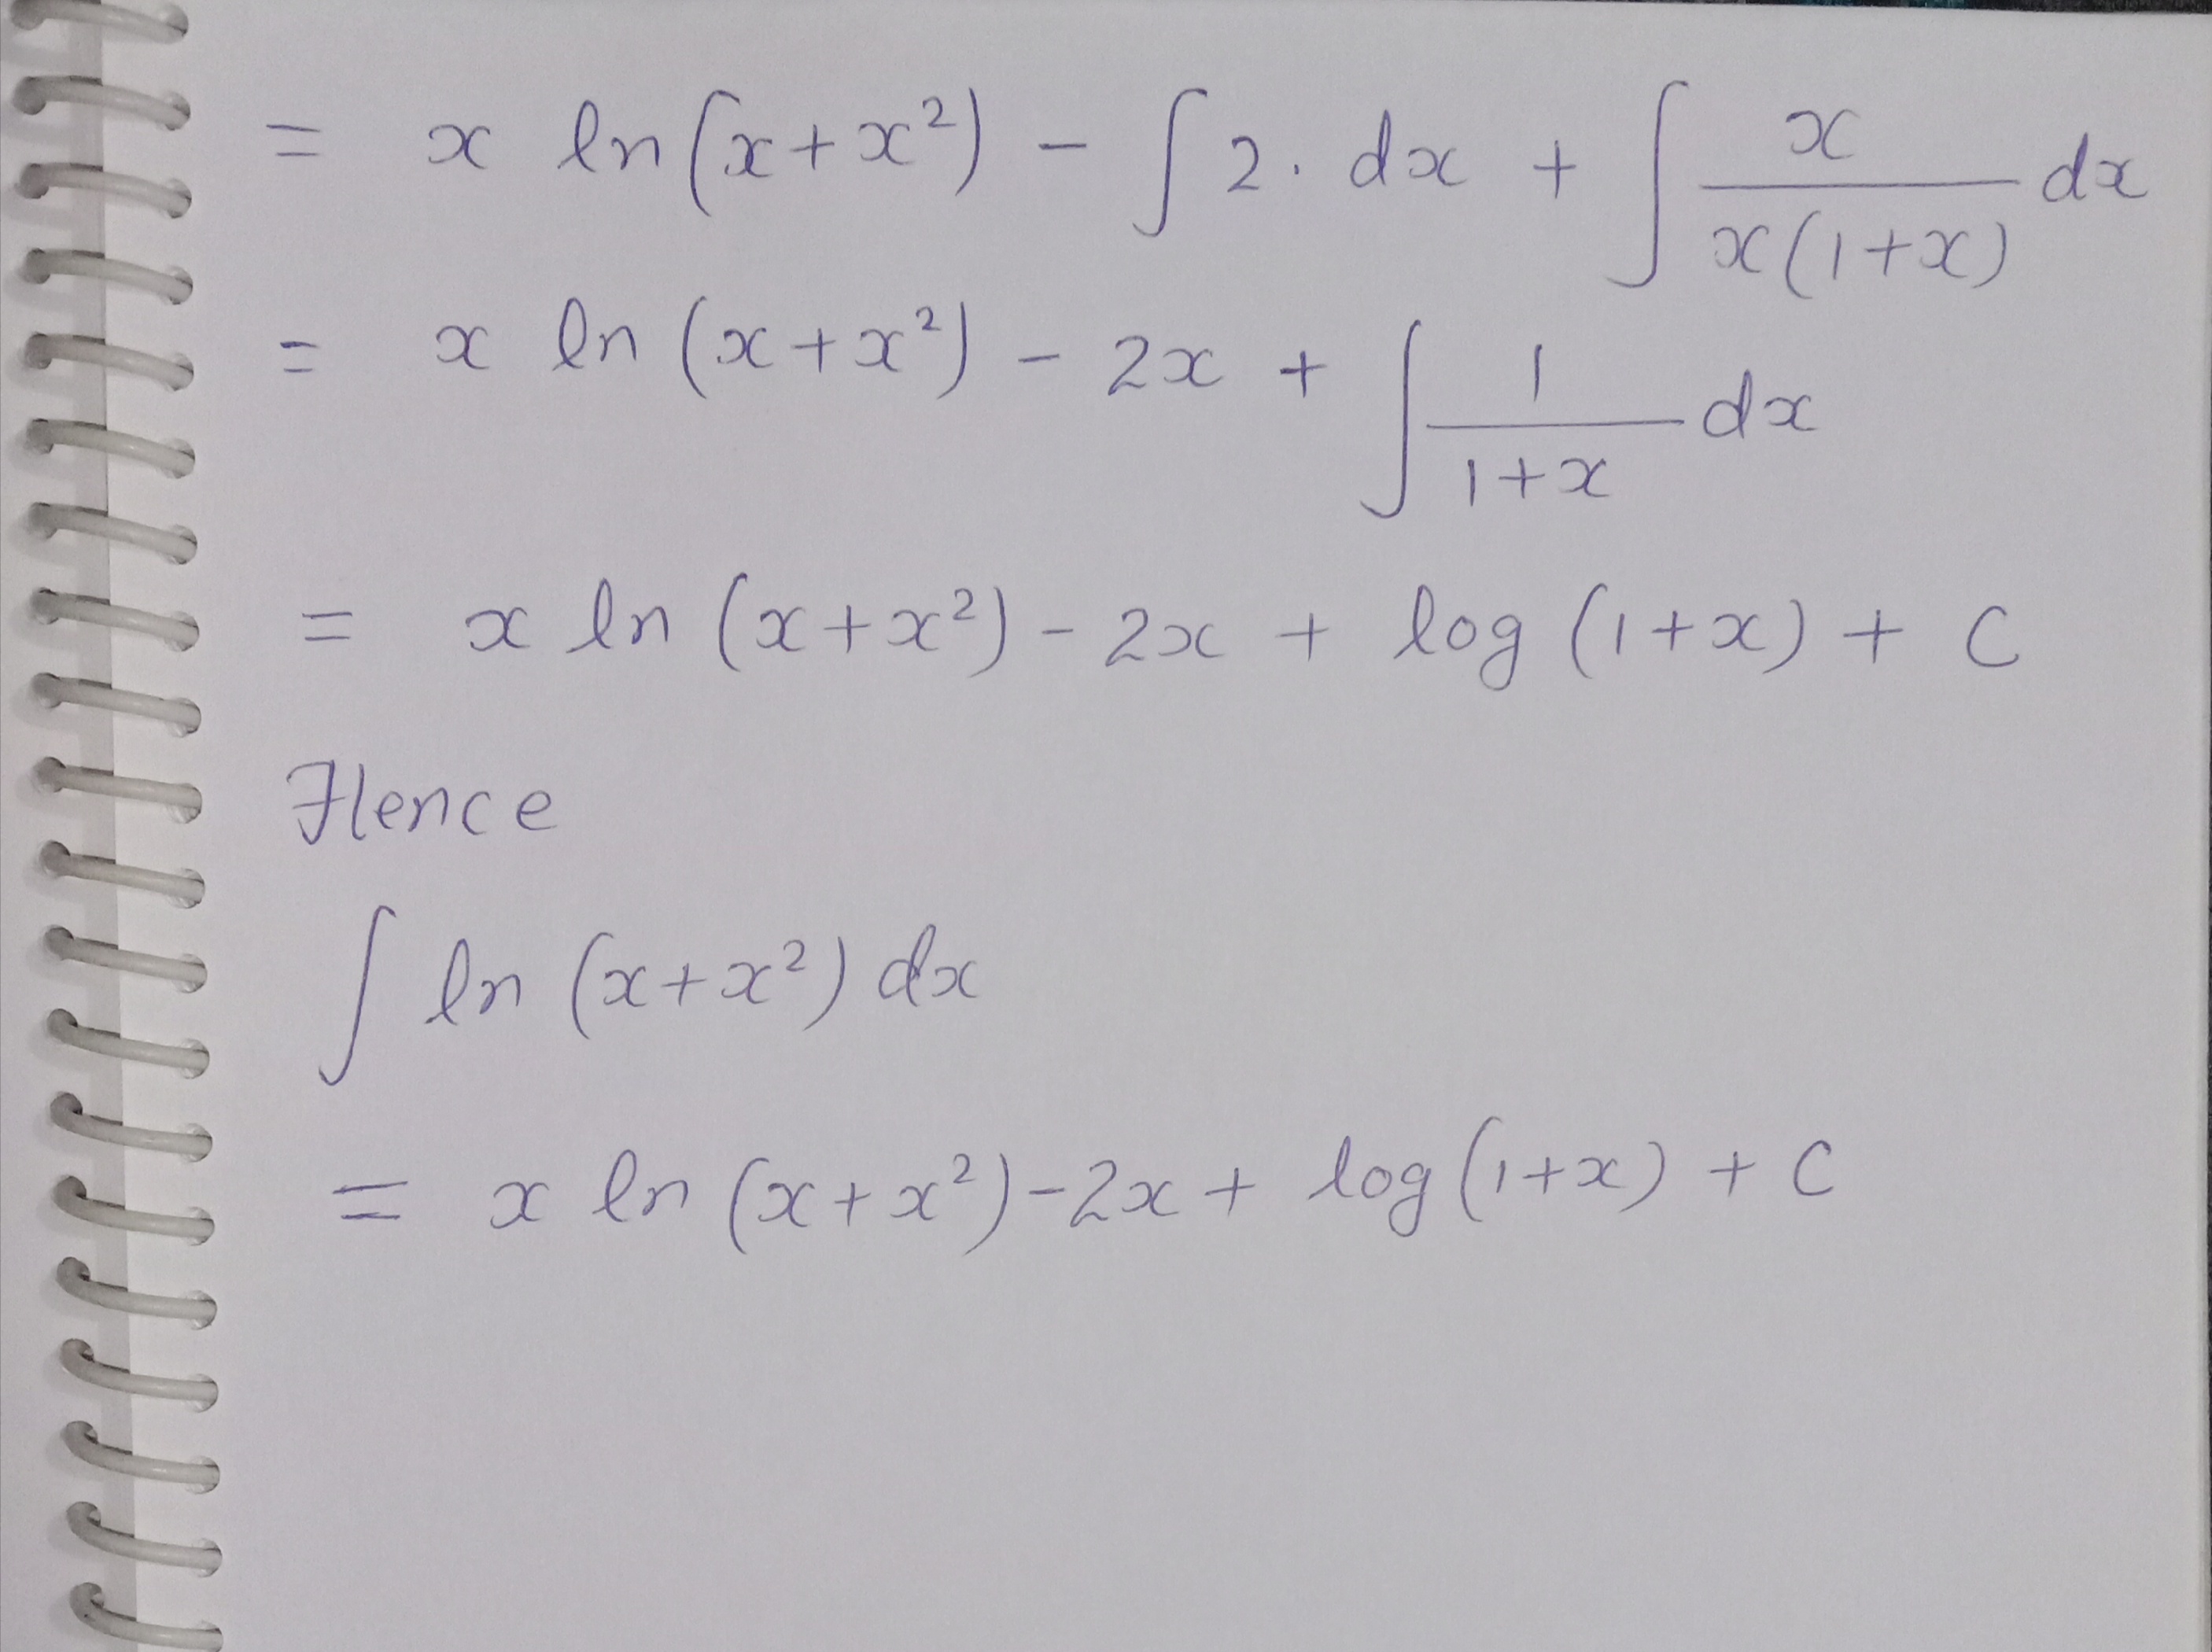 = x ln(x+x²) - ∫2. dx + ∫ x/(x(1+x)) dx
= x ln (x+x²) - 2x + ∫ 1/(1+x) dx
= x ln (x+x²) - 2x + log (1+x) + C
Hence
∫ ln (x+x²) dx
= x ln (x+x²) - 2x + log (1+x) + C